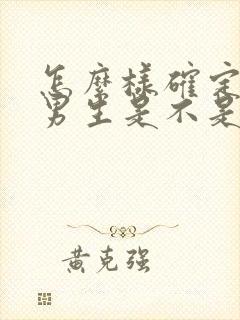 怎麽樣確定
男生是不是
黃克強